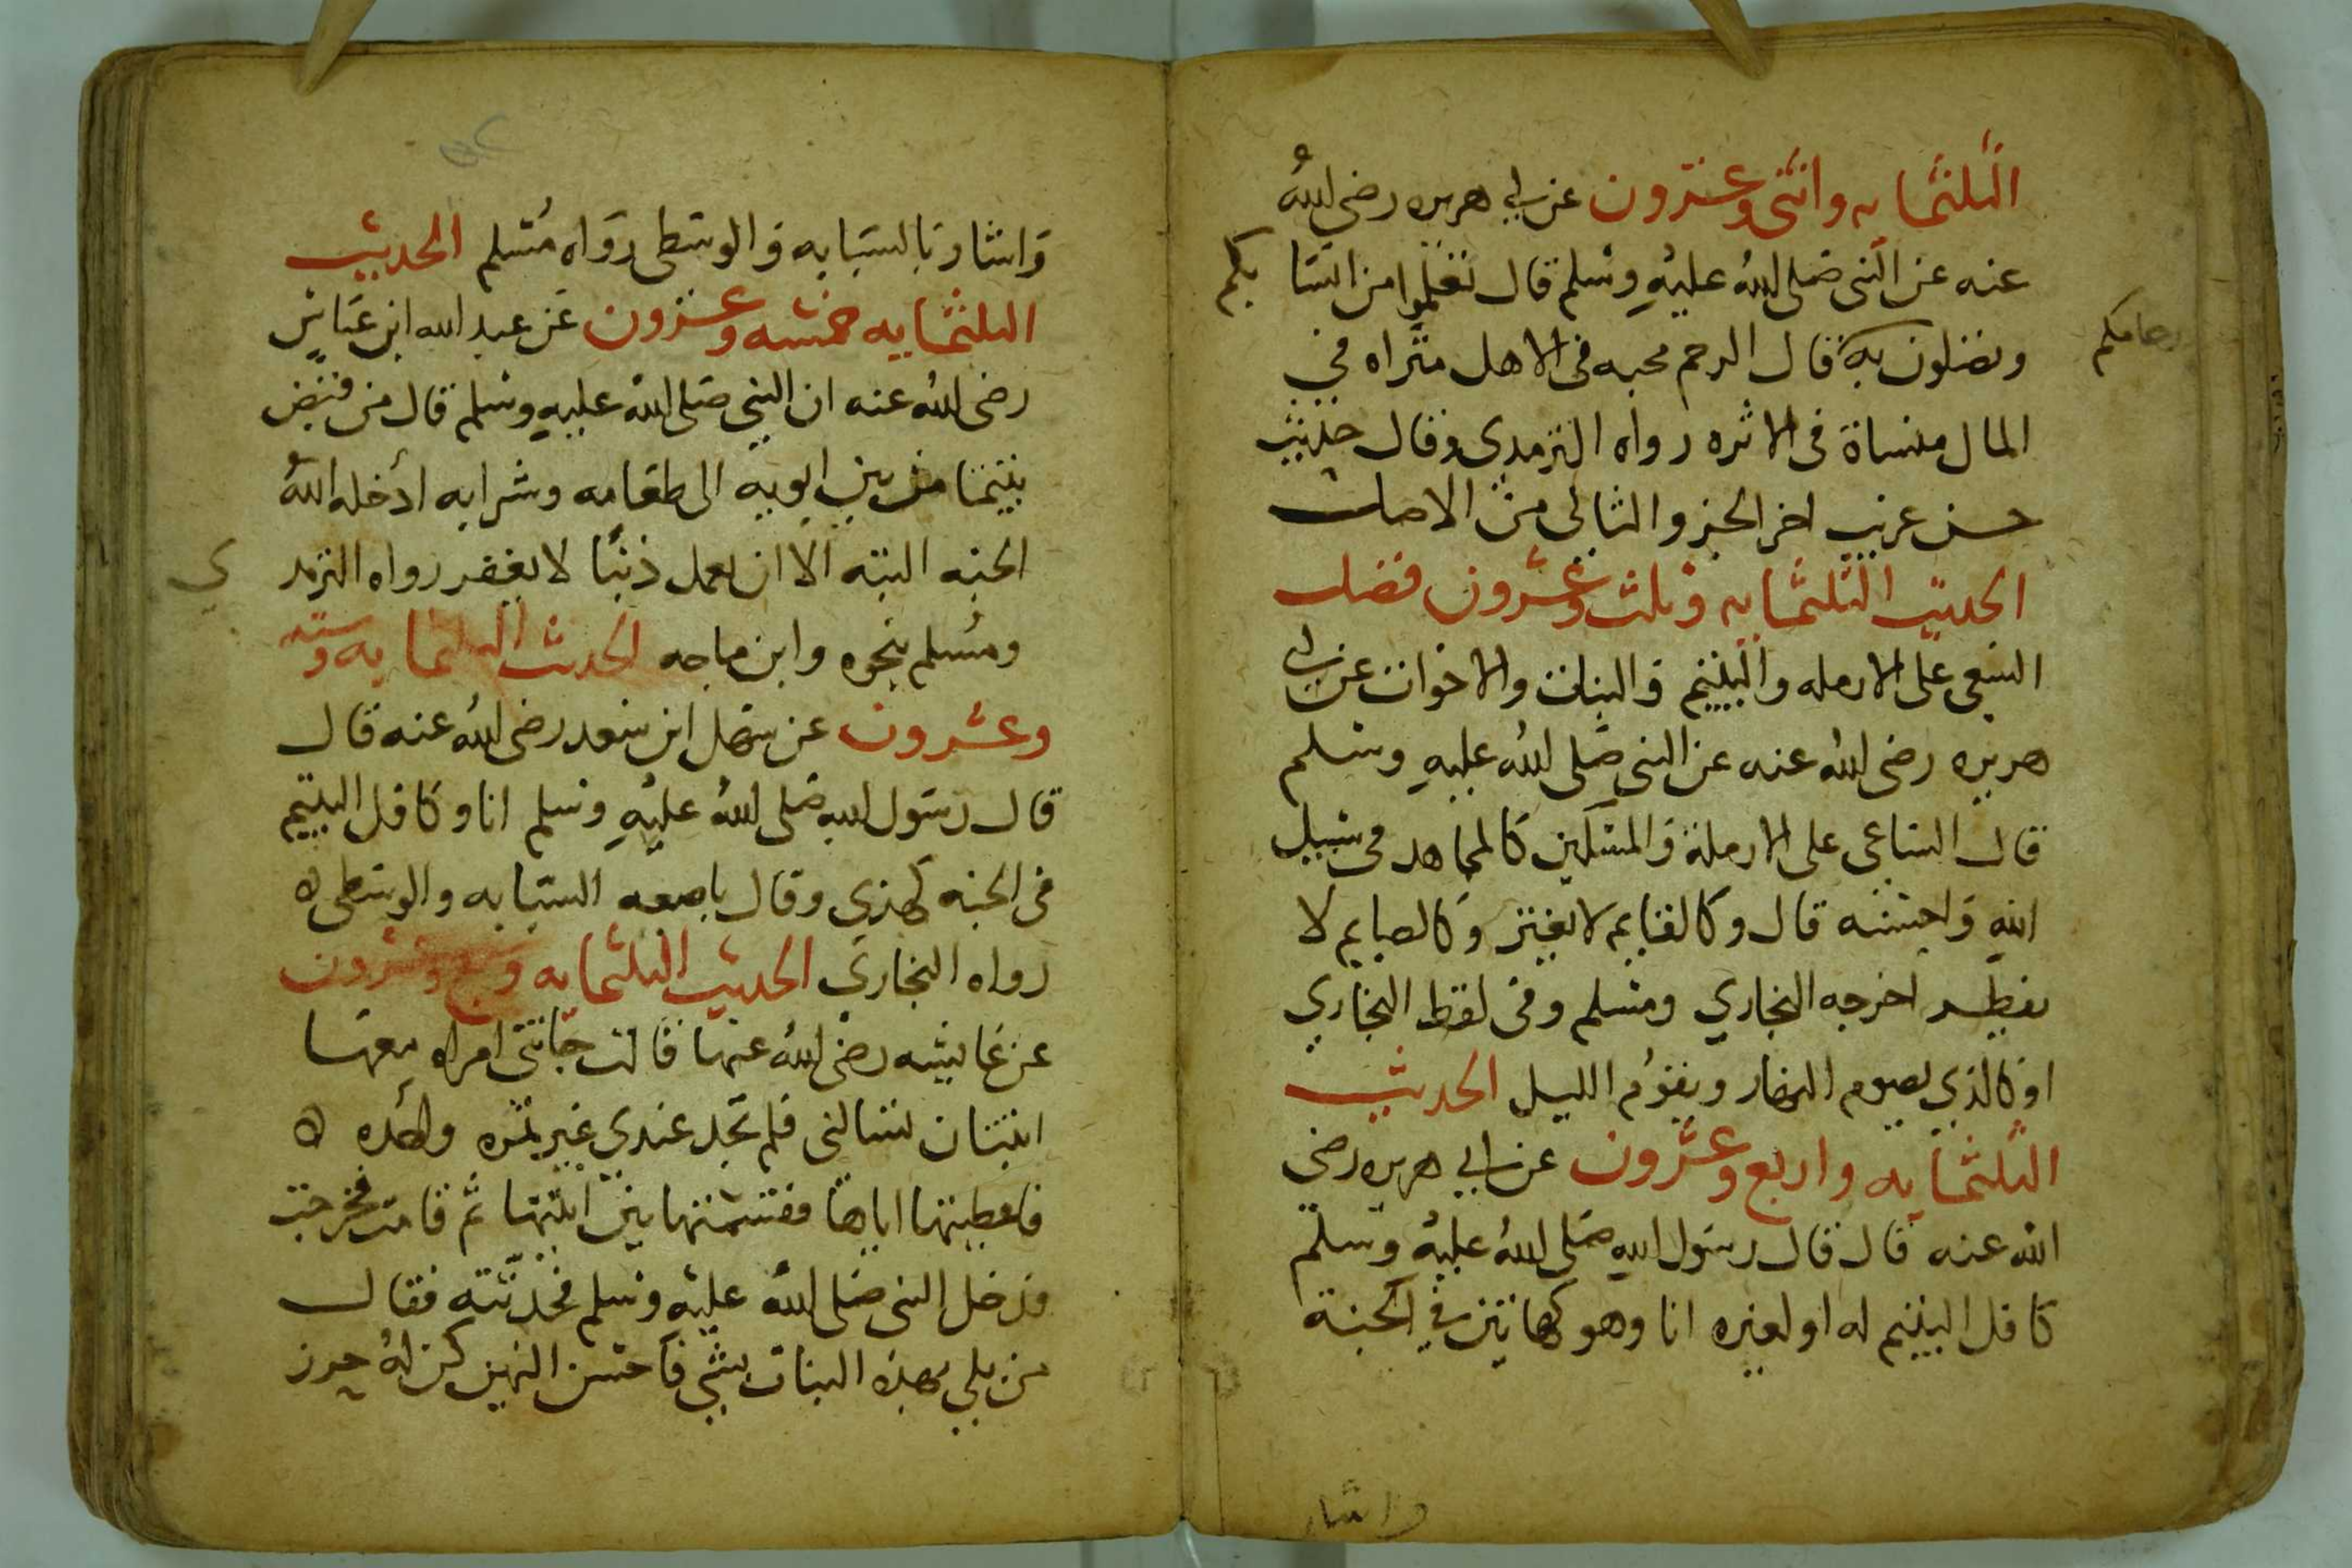 الثلثمايه واثنى وعشرون عن ابي هريره رضى الله
عنه عن النبى صلى الله عليه وسلم قال تعلموا من انسابكم
وتصلون به قال الرحم محبه فى الاهل مثراه في
ارحامكم
المال منساة فى الاثره رواه الترمدي وقال حديث
حسن غريب اخر الجز والثالى من الاصل
الحديث الثلثمايه وثلث وعشرون فضل
السعى على الارمله واليتيم والبنات والاخوات عن ابي
هريره رضى الله عنه عن النبى صلى الله عليه وسلم
قال الساعى على الارملة والمسكين كالمجاهد فى سبيل
الله واحسبه قال وكالقايم لا يفتر وكالصايم لا
يفطر اخرجه البخاري ومسلم وفى لفظ البخاري
او كالذي يصوم النهار ويقوم الليل الحديث
الثلثمايه واربع وعشرون عن ابي هريره رضى
الله عنه قال قال رسول الله صلى الله عليه وسلم
كافل اليتيم له او لغيره انا وهو كهاتين في الجنة
واشار
واشار بالسبابه والوسطى رواه مسلم الحديث
الثلثمايه خمسه وعشرون عن عبد الله ابن عباس
رضى الله عنه ان النبي صلى الله عليه وسلم قال من قبض
يتيما من بين ابويه الى طعامه وشرابه ادخله الله
الجنه البته الا ان يعمل ذنبا لا يغفر رواه الترمدي
ومسلم بنحوه وابن ماجه الحديث الثلثمايه وسته
وعشرون عن سهل ابن سعد رضى الله عنه قال
قال رسول الله صلى الله عليه وسلم انا وكافل اليتيم
فى الجنه كهذي وقال باصبعه السبابه والوسطى ه
رواه البخاري الحديث الثلثمايه وسبع وعشرون
عن عايشه رضى الله عنها قالت جاتنى امراه معها
ابنتان تسالنى فلم تجد عندي غير تمره واحده ه
فاعطيتها اياها فقسمتها بين ابنتها ثم قامت فخرجت
فدخل النبى صلى الله عليه وسلم فحدثته فقال
من بلي بهذه البنات بشي فاحسن اليهن كن له حرز